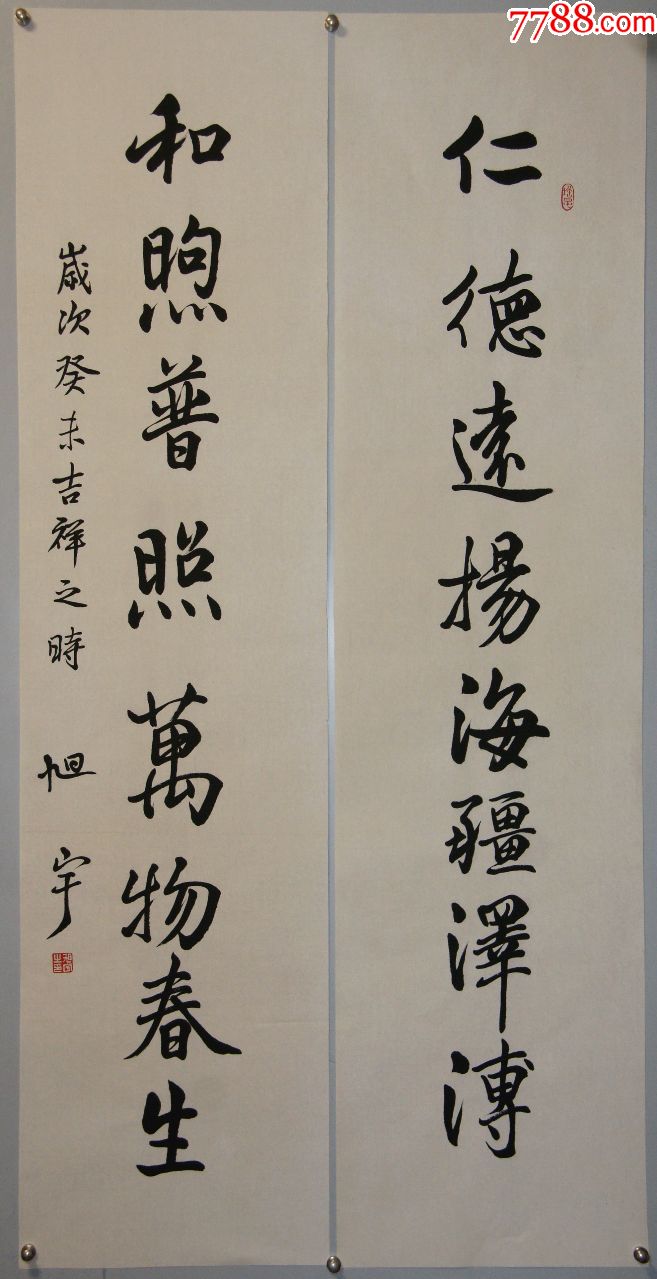 7788.com
仁德遠揚海疆澤溥
和煦普照萬物春生
歲次癸未吉祥之時 旭宇